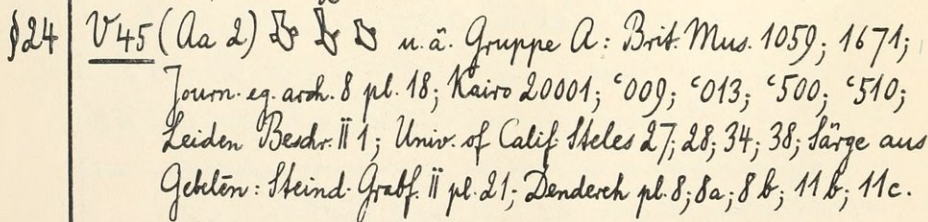 §24 V45 (Aa 2) u. ä. Gruppe A: Brit. Mus. 1059; 1671;
Journ. eg. arch. 8 pl. 18; Kairo 20001; ᶜ009; ᶜ013; ᶜ500; ᶜ510;
Leiden Beschr. II 1; Univ. of Calif. Steles 27; 28; 34; 38; Särge aus
Gebelên: Steind. Grabf. II pl. 21; Dendereh pl. 8; 8a; 8b; 11b; 11c.